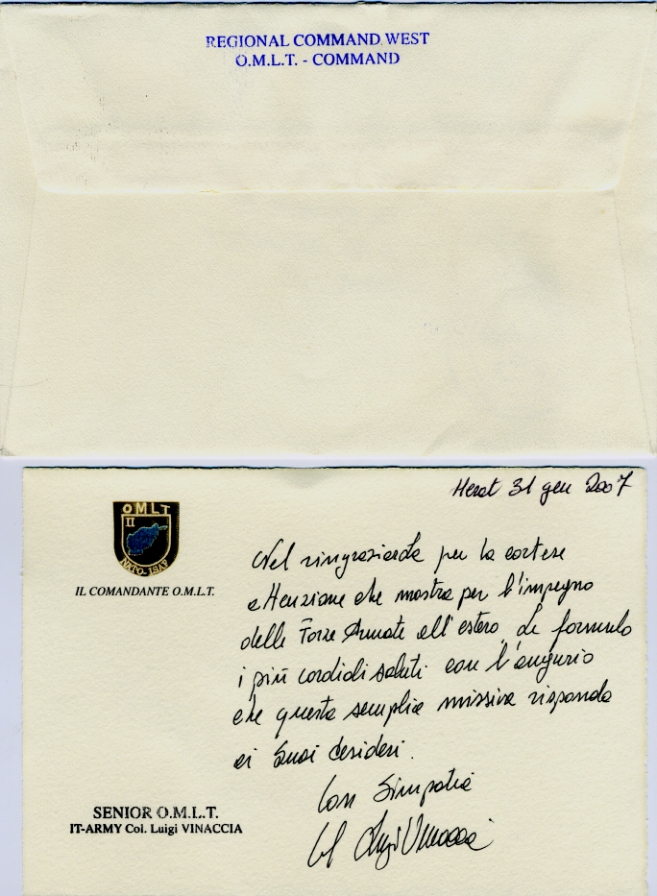 REGIONAL COMMAND WEST
O.M.L.T. - COMMAND
Herat 31 gen 2007
OMLT
II
NATO-ISAF
IL COMANDANTE O.M.L.T.
Nel ringraziarLa per la cortese
attenzione che mostra per l'impegno
delle Forze Armate all'estero, Le formulo
i più cordiali saluti con l'augurio
che questa semplice missiva risponda
ai Suoi desideri.
Con Simpatia
Col Luigi Vinaccia
SENIOR O.M.L.T.
IT-ARMY Col. Luigi VINACCIA